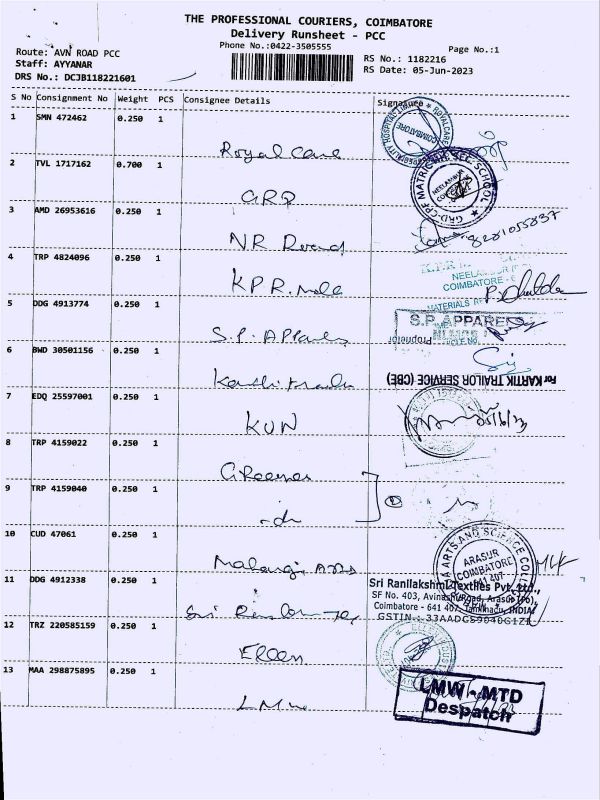 THE PROFESSIONAL COURIERS, COIMBATORE
Delivery Runsheet - PCC
Phone No.:0422-3505555
Page No.:1
Route: AVN ROAD PCC
Staff: AYYANAR
DRS No.: DCJB118221601
RS No.: 1182216
RS Date: 05-Jun-2023
S No Consignment No Weight PCS Consignee Details Signature
1 SMN 472462 0.250 1
Royal Care
ROYALCARE
HOSPITAL
COIMBATORE
2 TVL 1717162 0.700 1
GRD
GRD-CPF MATRIC HR. SEC. SCHOOL
NEELAMBUR
3 AMD 26953616 0.250 1
NR
8281055837
4 TRP 4824096 0.250 1
KPR. 
NEELAMBUR
COIMBATORE
MATERIALS
5 DDG 4913774 0.250 1
S.P. 
S.P. APPARELS
Proprietor
6 BWD 30501156 0.250 1
For KARTIK TRAILOR SERVICE (CBE)
7 EDQ 25597001 0.250 1
KUN
8 TRP 4159022 0.250 1
9 TRP 4159040 0.250 1
- do
2
10 CUD 47061 0.250 1
ARTS AND SCIENCE COLLEGE
ARASUR
COIMBATORE
641 407
11 DDG 4912338 0.250 1
Sri
Sri Ranilakshmi Textiles Pvt. Ltd.,
SF No. 403, Avinashi Road, Arasur (Po),
Coimbatore - 641 407, Tamilnadu, INDIA
GSTIN : 33AADCS9040G1Z1
12 TRZ 220585159 0.250 1
13 MAA 298875895 0.250 1
LMW
LMW - MTD
Despatch